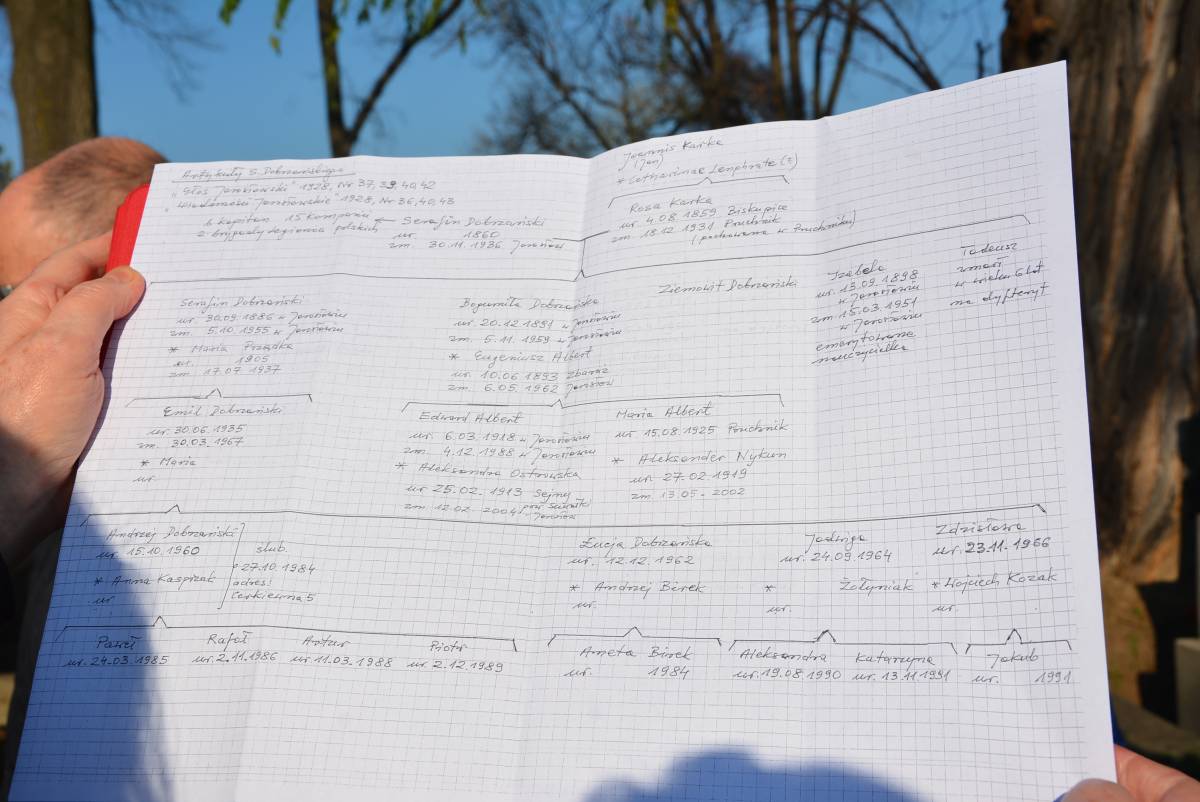 Artykuły S. Dobrzańskiego
"Głos Jarosławski" 1928, Nr 37, 39, 40, 42
"Wiadomości Jarosławskie" 1928, Nr 36, 40, 43
kapitan 15 kompanii
z brygady legionów polskich
← Serafin Dobrzański
ur. 1860
zm. 30.11.1936 Jarosław
Joannis Karka
(Jan)
* Catharinae
Rosa Karka
ur. 4.08 1859 Biskupice
zm. 18.12 1931 Pruchnik
(pochowana w Pruchniku)
Serafin Dobrzański
ur. 30.09.1886 w Jarosławiu
zm. 5.10.1955 w Jarosławiu
* Maria Prządka
ur. 1905
zm. 17.07 1937
Bogumiła Dobrzańska
ur. 20.12 1891 w Jarosławiu
zm. 5.11 1959 w Jarosławiu
* Eugeniusz Albert
ur. 10.06 1893 Zbaraż
zm. 6.05 1962 Jarosław
Ziemowit Dobrzański
Izabela
ur. 13.09.1898
w Jarosławiu
zm. 15.03.1951
w Jarosławiu
emerytowana
nauczycielka
Tadeusz
zmarł
w wieku 6 lat
na dyfteryt
Emil Dobrzański
ur. 30.06 1935
zm. 30.03 1967
* Maria
ur.
Edward Albert
ur. 6.03.1918 w Jarosławiu
zm. 4.12.1988 w Jarosławiu
* Aleksandra Ostrowska
ur 25.02. 1913 Sejny
pow. Suwałki
zm. 12.02 2004 Jarosław
Maria Albert
ur 15.08.1925 Pruchnik
* Aleksander Nykun
ur. 27.02.1919
zm. 13.05.2002
Andrzej Dobrzański
ur. 15.10.1960
* Anna Kasprzak
ur.
ślub.
27.10.1984
adres:
Cerkiewna 5
Łucja Dobrzańska
ur. 12.12.1962
* Andrzej Birek
ur.
Jadwiga
ur. 24.09.1964
* Żołyniak
ur.
Zdzisława
ur. 23.11.1966
* Wojciech Kozak
ur.
Paweł
ur. 24.03.1985
Rafał
ur. 2.11.1986
Artur
ur. 11.03.1988
Piotr
ur. 2.12.1989
Aneta Birek
ur. 1984
Aleksandra
ur. 19.08.1990
Katarzyna
ur. 13.11.1991
Jakub
ur. 1991